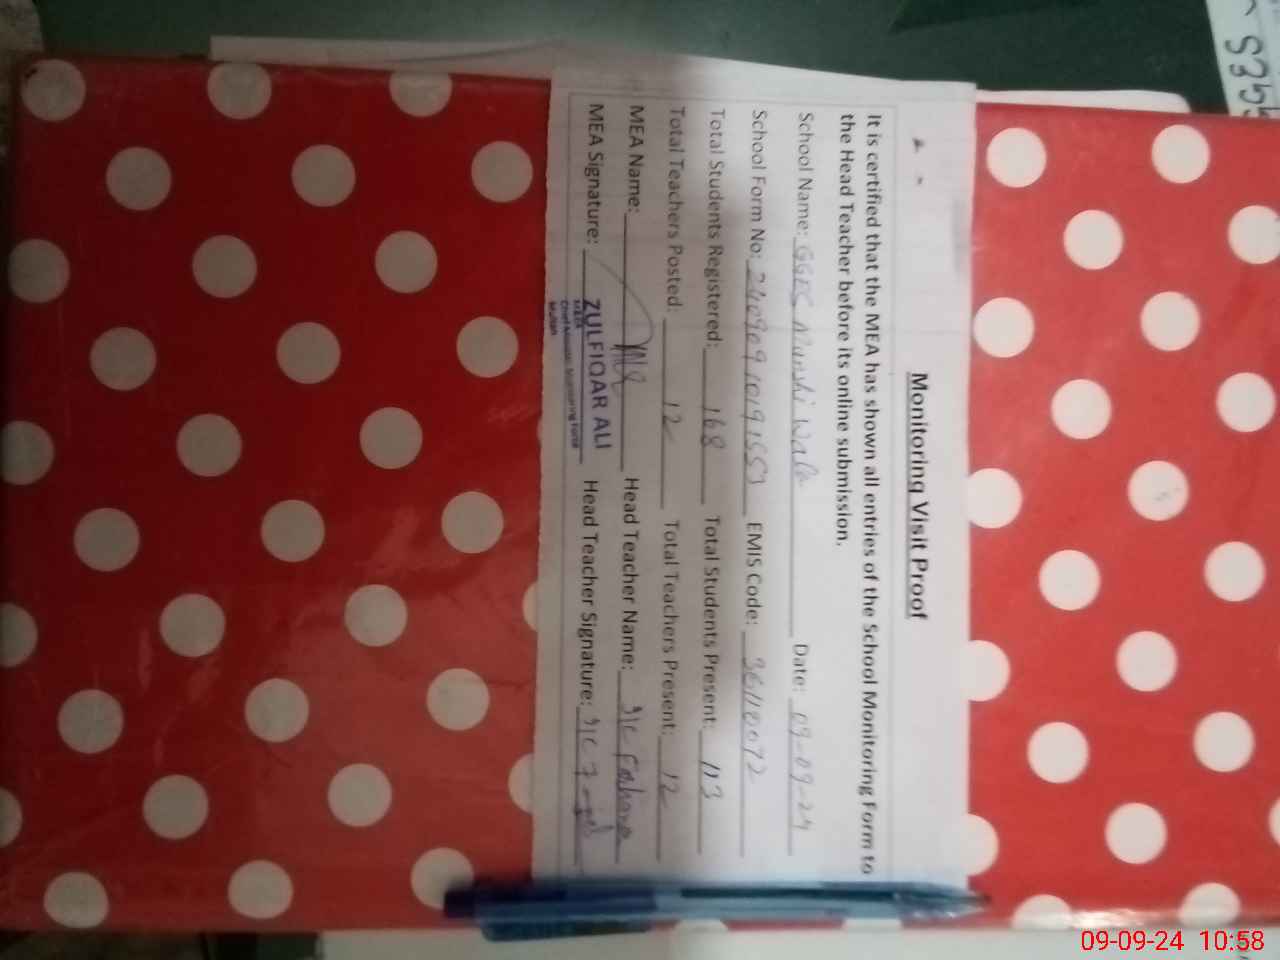 Monitoring Visit Proof
It is certified that the MEA has shown all entries of the School Monitoring Form to
the Head Teacher before its online submission.
School Name: GGPS Munshi Wala Date: 09-09-24
School Form No: 24090910191553 EMIS Code: 36110072
Total Students Registered: 168 Total Students Present: 113
Total Teachers Posted: 12 Total Teachers Present: 12
MEA Name: Head Teacher Name: Farhana
MEA Signature: Head Teacher Signature:
ZULFIQAR ALI
M&EA
Chief Minister Monitoring Force
Multan
09-09-24 10:58